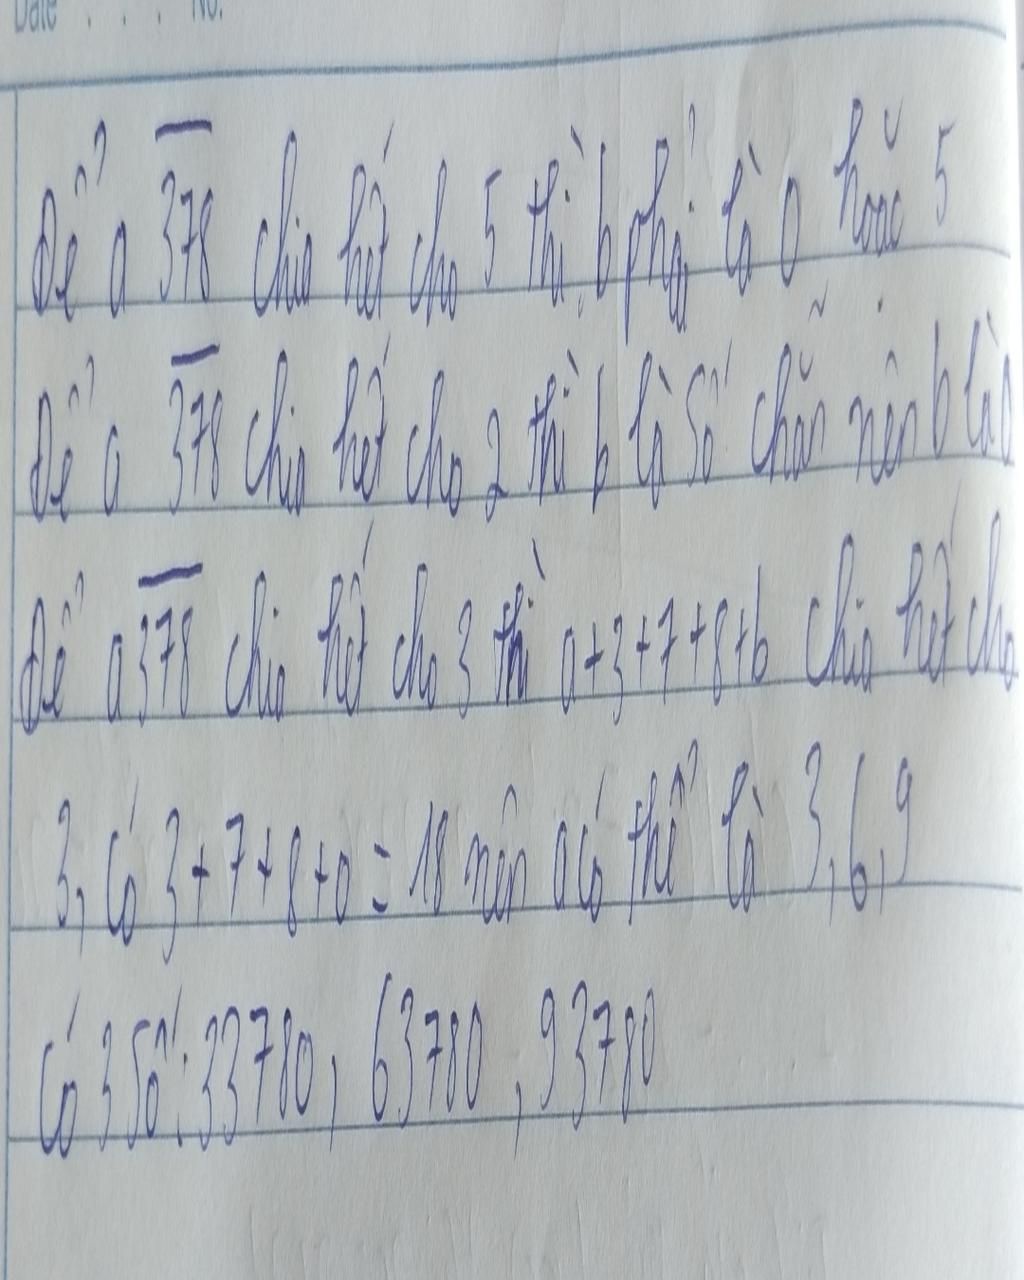 Date . . . . No.
Để a 378 chia hết cho 5 thì b phải là 0 hoặc 5
Để a 378 chia hết cho 2 thì b là số chẵn nên b là 0
Để a 378 chia hết cho 3 thì a+3+7+8+b chia hết cho
3, có 3+7+8+0=18 nên a có thể là 3,6,9
Có 3 số: 33780, 63780, 93780